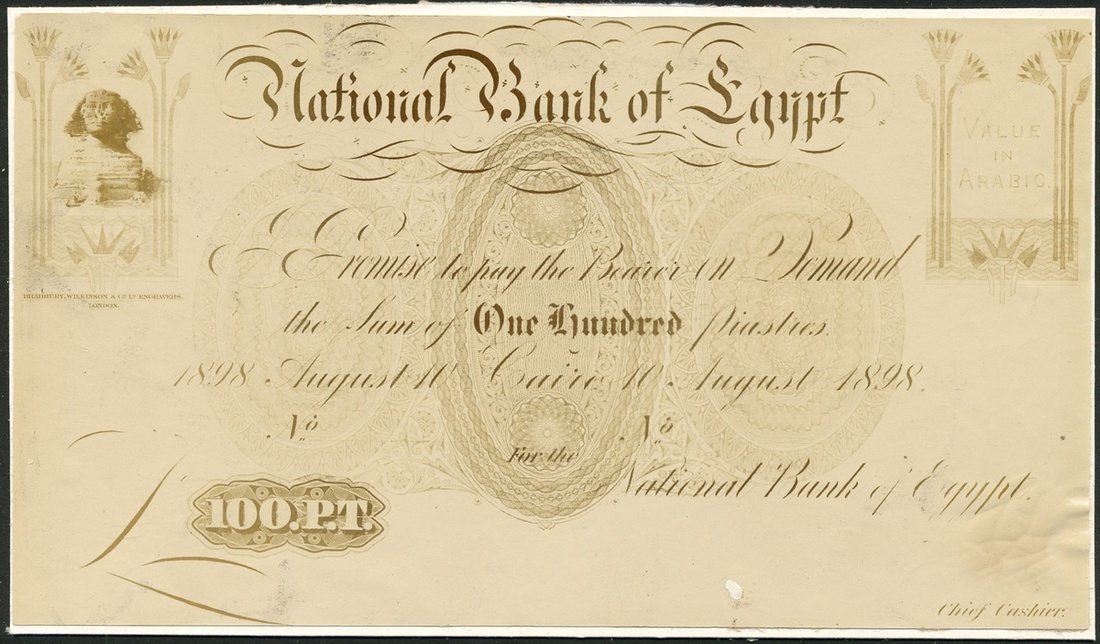 National Bank of Egypt
VALUE
IN
ARABIC.
I Promise to pay the Bearer on Demand
BRADBURY, WILKINSON & Co. Ld. ENGRAVERS,
LONDON.
the Sum of One Hundred Piastres.
1898 August 10 Cairo 10 August 1898.
No No
For the
National Bank of Egypt.
£ 100.P.T.
Chief Cashier.